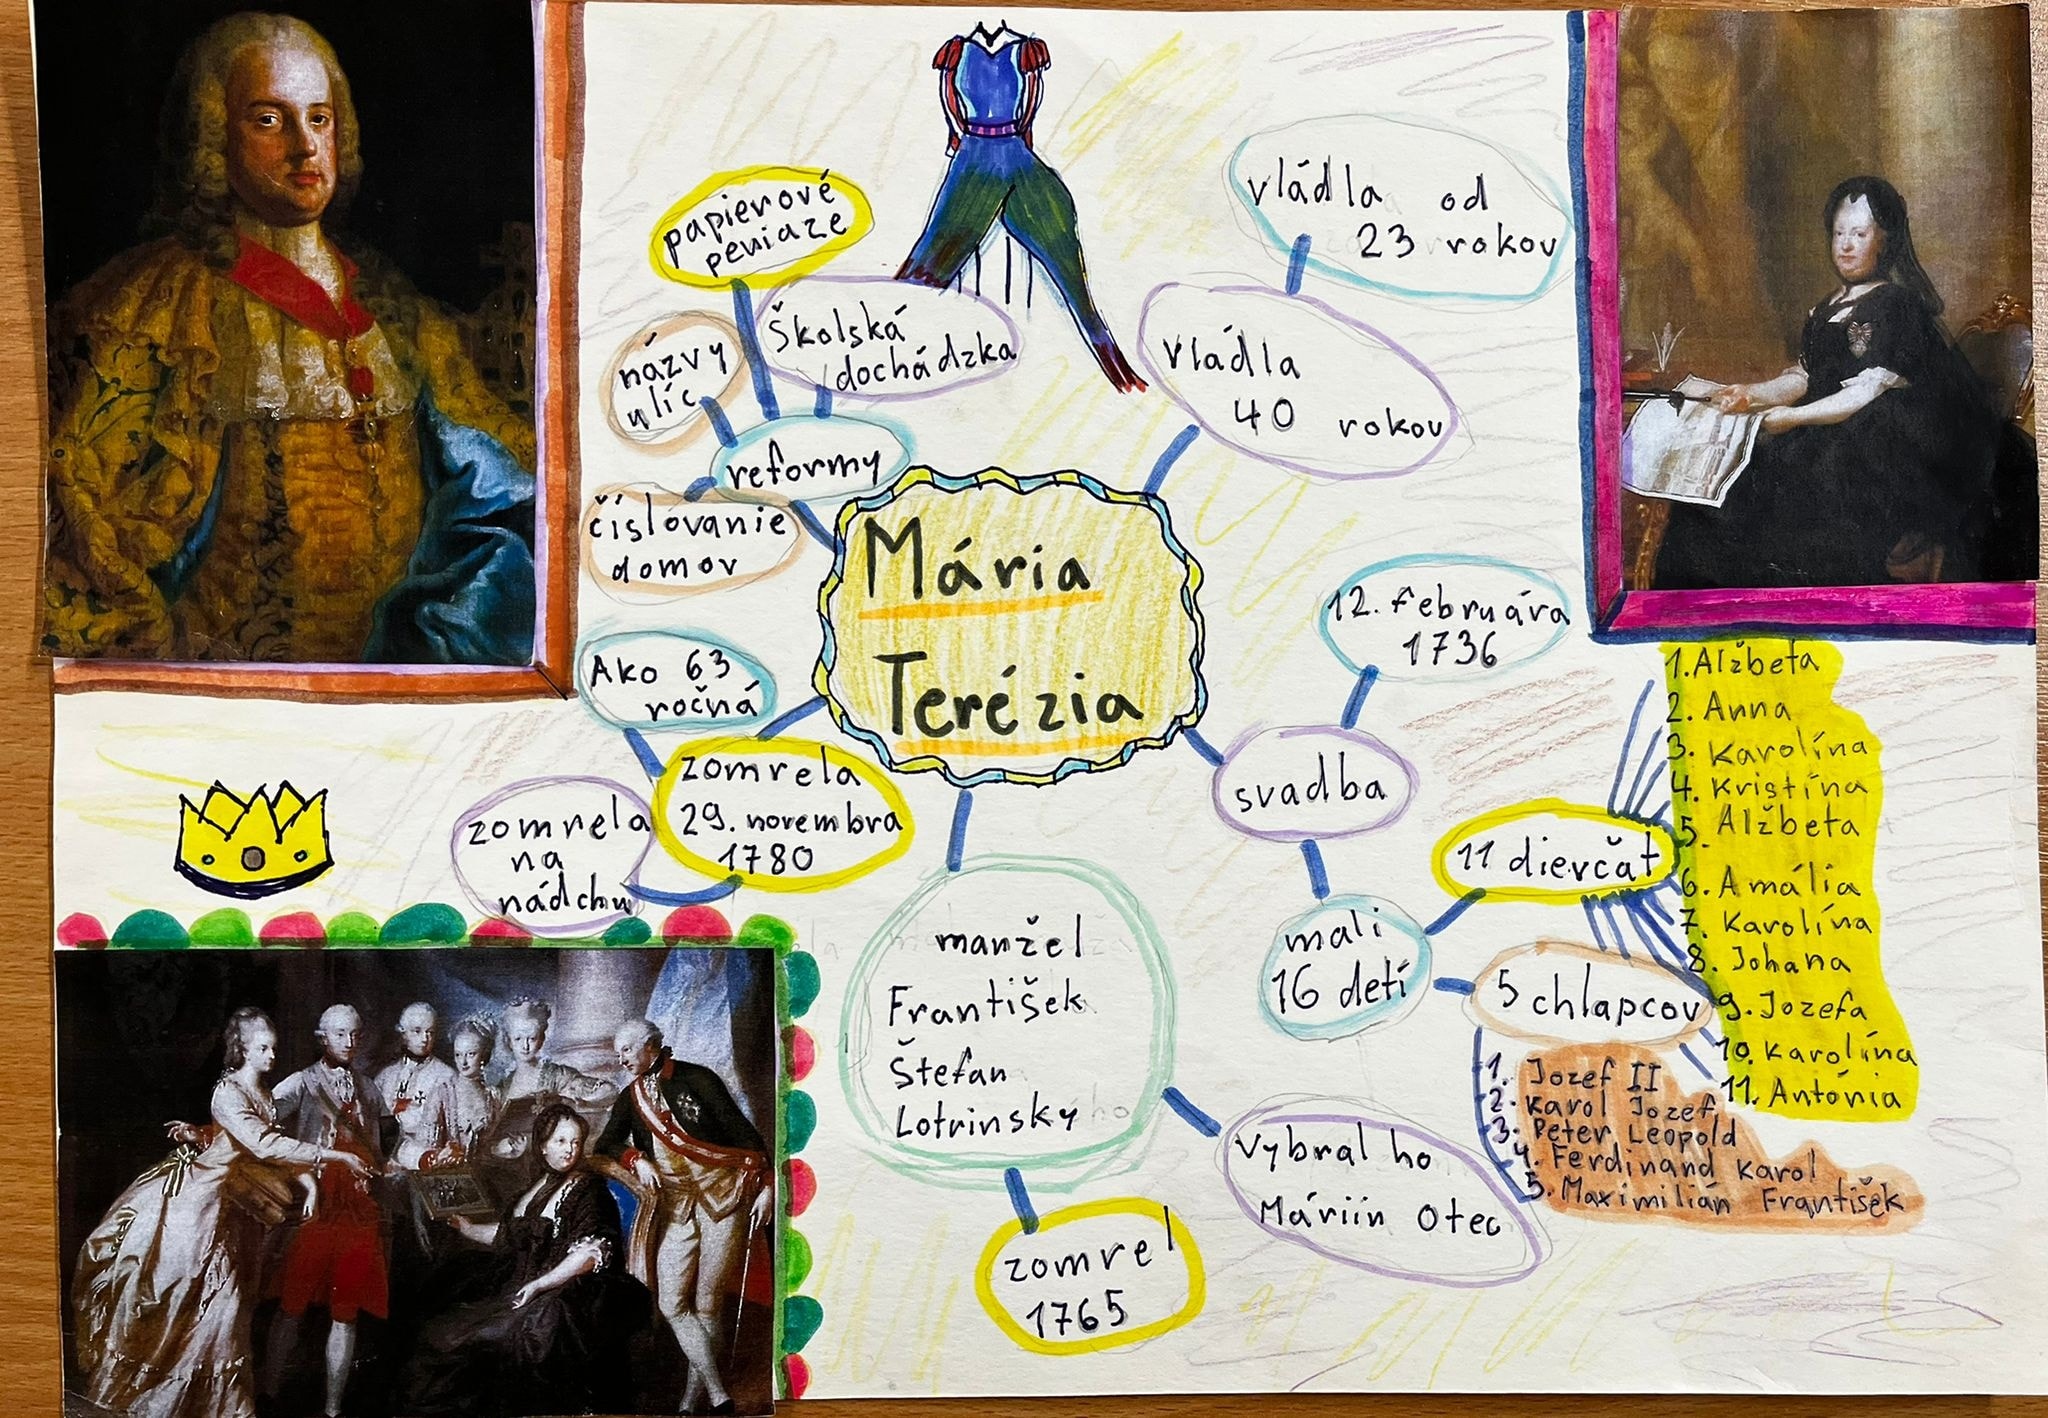 papierové
peniaze
Školská
dochádzka
názvy
ulíc
reformy
číslovanie
domov
vládla od
23 rokov
vládla
40 rokov
Mária
Terézia
Ako 63
ročná
zomrela
29. novembra
1780
zomrela
na
nádchu
12. februára
1736
svadba
mali
16 detí
11 dievčat
1. Alžbeta
2. Anna
3. Karolína
4. Kristína
5. Alžbeta
6. Amália
7. Karolína
8. Johana
9. Jozefa
10. Karolína
11. Antónia
5 chlapcov
1. Jozef II
2. Karol Jozef
3. Peter Leopold
4. Ferdinand Karol
5. Maximilián František
manžel
František
Štefan
Lotrinský
Vybral ho
Máriin Otec
zomrel
1765